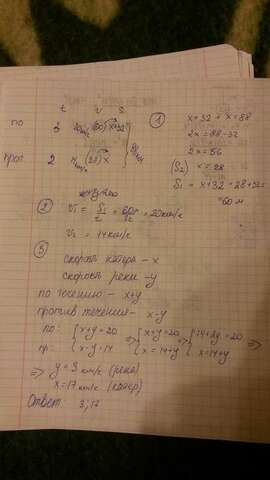 t V S
①
по 3 20км/ч (60) x+32
прот. 2 14км/ч (28) x
88км
x+32+x=88
2x=88-32
2x=56
(S₂) x=28
S₁=x+32=28+32=
=60 м
② V₁ = S₁/t = 60/3 = 20км/ч
V₂ = 14км/ч
③
скорость катера - x
скорость реки - y
по течению - x+y
против течения - x-y
по: { x+y=20 => { x+y=20 => { 14+2y=20 =>
пр: { x-y=14 { x=14+y { x=14+y
=> y=3 км/ч (река)
x=17 км/ч (катер)
Ответ: 3; 17